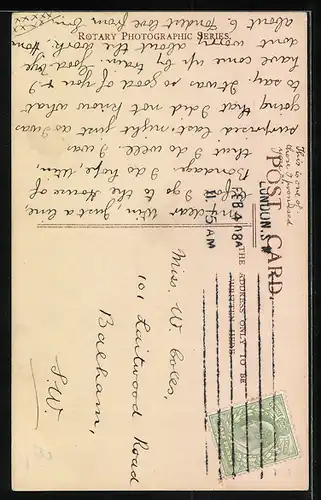 ROTARY PHOTOGRAPHIC SERIES.
POST CARD.
THE ADDRESS ONLY TO BE
WRITTEN HERE
LONDON. S.W
11.15 AM
FEB 4 08
This is one of
those I promised
My dear Win, Just a line
before I go to the House of
Bondage. I do hope, Win
that I do well. I was
surprised last night just as I was
going that I did not know what
to say. It was so good of you & I
have come up by train. Good-bye
dont worry about the work. Home
about 6. Fondest love from
xxxx
Miss. W. Coles,
101 Laitwood Road
Balham,
S.W.